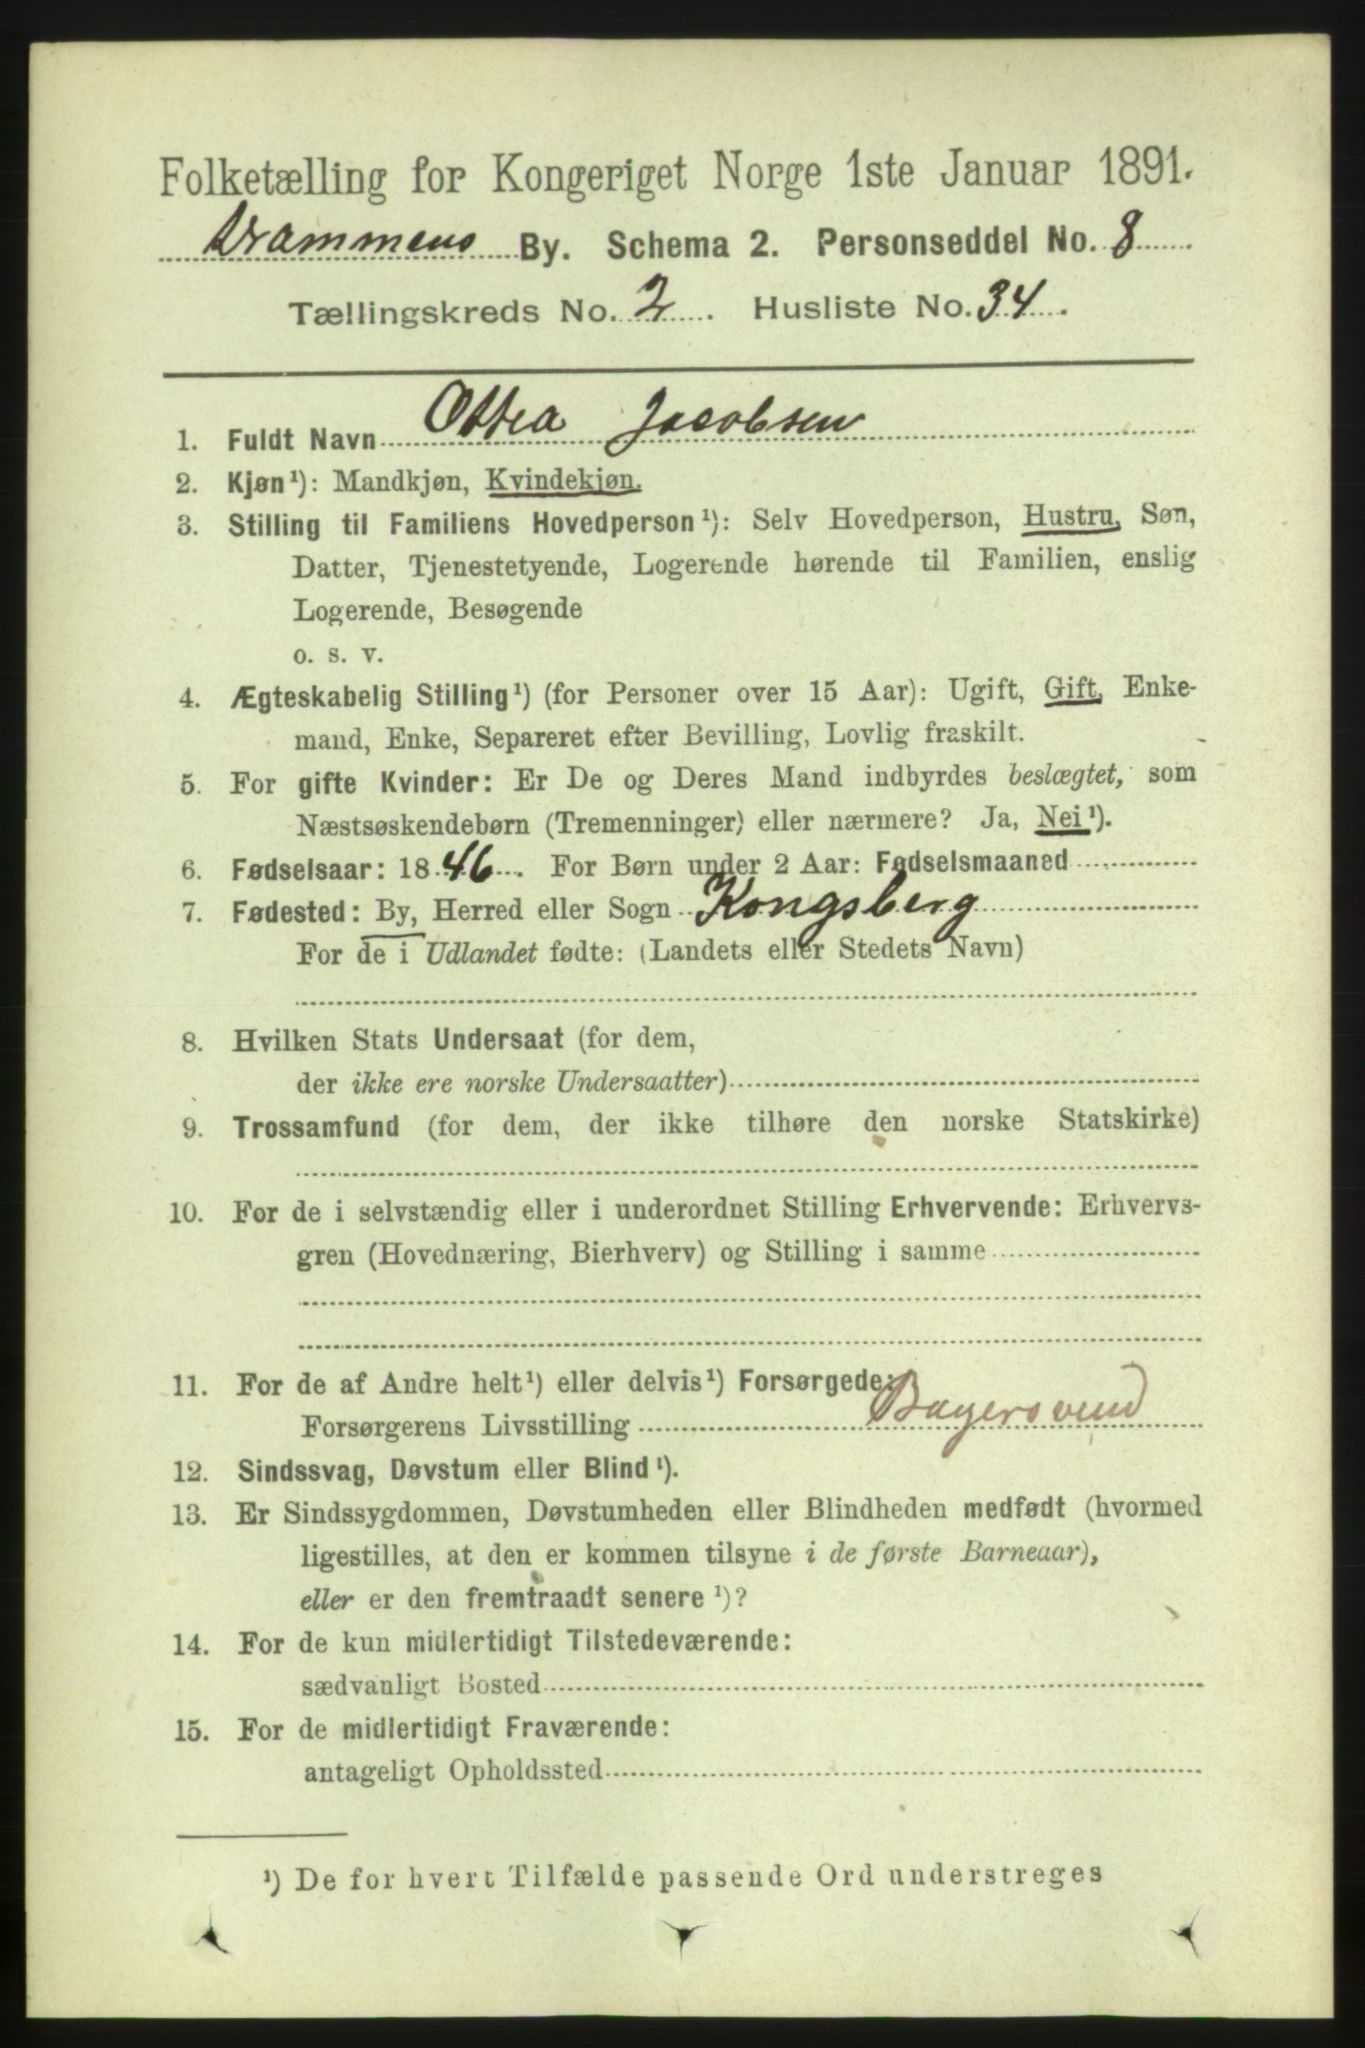 Folketælling for Kongeriget Norge 1ste Januar 1891.
Drammens By. Schema 2. Personseddel No. 8
Tællingskreds No. 2. Husliste No. 34.
1. Fuldt Navn Ottea Jacobsen
2. Kjøn¹): Mandkjøn, Kvindekjøn.
3. Stilling til Familiens Hovedperson¹): Selv Hovedperson, Hustru, Søn,
Datter, Tjenestetyende, Logerende hørende til Familien, enslig
Logerende, Besøgende
o. s. v.
4. Ægteskabelig Stilling¹) (for Personer over 15 Aar): Ugift, Gift, Enke-
mand, Enke, Separeret efter Bevilling, Lovlig fraskilt.
5. For gifte Kvinder: Er De og Deres Mand indbyrdes beslægtet, som
Næstsøskendebørn (Tremenninger) eller nærmere? Ja, Nei¹).
6. Fødselsaar: 1846. For Børn under 2 Aar: Fødselsmaaned
7. Fødested: By, Herred eller Sogn Kongsberg
For de i Udlandet fødte: (Landets eller Stedets Navn)
8. Hvilken Stats Undersaat (for dem,
der ikke ere norske Undersaatter)
9. Trossamfund (for dem, der ikke tilhøre den norske Statskirke)
10. For de i selvstændig eller i underordnet Stilling Erhvervende: Erhvervs-
gren (Hovednæring, Bierhverv) og Stilling i samme
11. For de af Andre helt¹) eller delvis¹) Forsørgede:
Forsørgerens Livsstilling Bagersvend
12. Sindssvag, Døvstum eller Blind¹).
13. Er Sindssygdommen, Døvstumheden eller Blindheden medfødt (hvormed
ligestilles, at den er kommen tilsyne i de første Barneaar),
eller er den fremtraadt senere¹)?
14. For de kun midlertidigt Tilstedeværende:
sædvanligt Bosted
15. For de midlertidigt Fraværende:
antageligt Opholdssted
¹) De for hvert Tilfælde passende Ord understreges